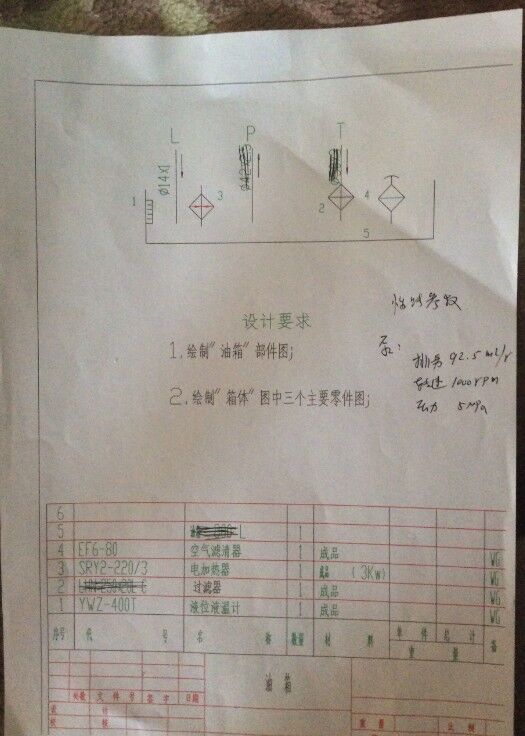 L P T
Ø14X1
1 3 2 4
5
设计要求
1.绘制"油箱"部件图;
2.绘制"箱体"图中三个主要零件图;
参数
泵:
排量 92.5 ml/r
转速 1000 rpm
压力 5 MPa
6
5 L 1
4 EF6-80 空气滤清器 1 成品 WG
3 SRY2-220/3 电加热器 1 成品 (3Kw) WG
2 过滤器 1 成品 WG
1 YWZ-400T 液位液温计 1 成品 WG
序号 代 号 名 称 数量 材 料 单件 总计 重 量 备
油 箱
处数 文件号 签字 日期
设 计
校 核
重量 比例